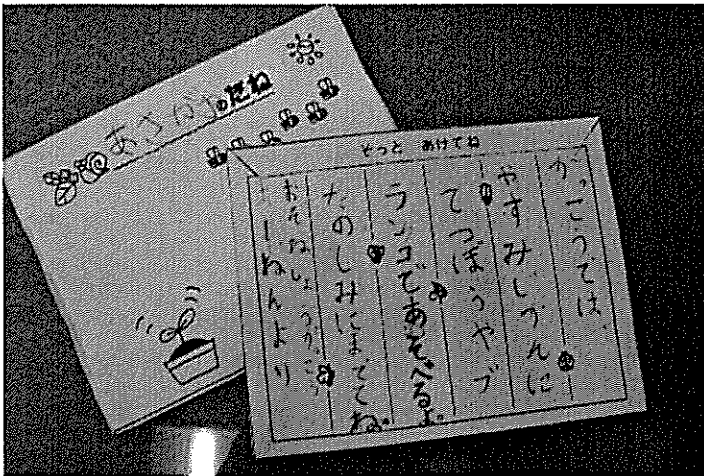 あさがおのたね
そっと あけてね
がっこうでは、
やすみじかんに
てつぼうやブ
ランコであそべるよ。
たのしみにまっててね。
おそねしょうがっこう
一ねんより